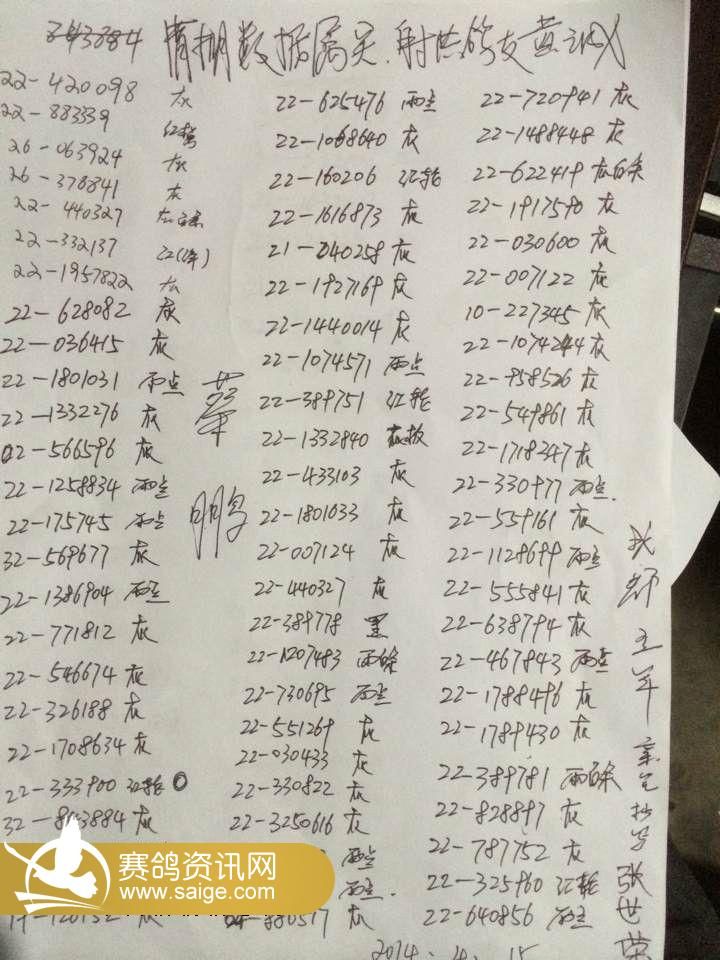 情棚数据属关.
22-420098 灰
22-883339 红轮
26-063924 灰
26-376841 灰
22-440327 灰白条
22-332137 红(绛)
22-1957822 灰
22-628082 灰
22-036415 灰
22-1801031 雨点
22-1332276 灰
22-566596 灰
22-1258834 雨点
22-175745 雨点
32-569677 灰
22-1386904 雨点
22-771812 灰
22-546674 灰
22-326188 灰
22-1708634 灰
22-333900 红轮
32-843884 灰
明
22-625476 雨点
22-1068640 灰
22-160206 红轮
22-1616873 灰
21-040258 灰
22-1927169 灰
22-1440014 灰
22-1074571 雨点
22-389751 红轮
22-1332840 灰
22-433103 灰
22-1801033 灰
22-007124 灰
22-440327 灰
22-389778 黑
22-1207483 雨白条
22-730695 雨点
22-551269 灰
22-030433 灰
22-330822 灰
22-3250616 灰
雨点
雨点.
-880517 灰
22-720941 灰
22-1488448 灰
22-622419 灰白条
22-1917590 灰
22-030600 灰
22-007122 灰
10-227345 灰
22-1074244 灰
22-958526 灰
22-549861 灰
22-1718347 灰
22-330977 雨点.
22-559161 灰
22-1128699 雨点
22-555841 灰
22-638794 灰
22-467843 雨点
22-1788496 灰
22-1789430 灰
22-389781 雨白条
22-828897 灰
22-787752 灰
22-325960 红轮
22-640856 雨点
2014.4.15
王军
张世荣
赛鸽资讯网
www.saige.com